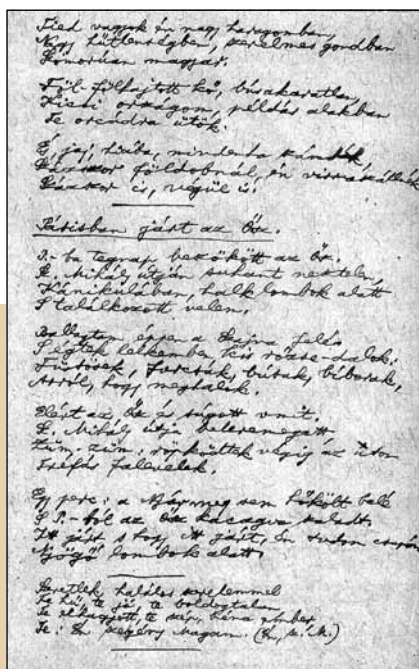 Tied vagyok én nagy haragomban,
Nagy hűtlenségben, szerelmes gondban
Szomorúan magyar.
Föl-fölhajtott kő, búsakaratlan,
Kicsi országom, példás alakban
Te orcádra ütök.
És jaj, hiába, mindenha szándék,
Százszor földobnál, én visszaszállnék,
Százszor is, végül is.
Párisban járt az Ősz.
P.-ba tegnap beszökött az Ősz.
Sz. Mihály útján suhant nesztelen,
Kánikulában, halk lombok alatt
S találkozott velem.
Ballagtam éppen a Szajna felé
S égtek lelkemben kis rőzse-dalok:
Füstösek, furcsák, búsak, bíborak,
Arról, hogy meghalok.
Elért az Ősz és súgott vmit,
Sz. Mihály útja beleremegett
Züm, züm: röpködtek végig az úton
Tréfás falevelek.
Egy perc: a Nyár meg sem hőkölt belé
S P.-ból az Ősz kacagva szaladt.
Itt járt s hogy itt járt, én tudom csupán
Nyögő lombok alatt.
Szeretlek halálos szerelemmel
Te hű, te jó, te boldogtalan
Te elhagyott, te szép, béna Ember
Te: Én szegény Magam.